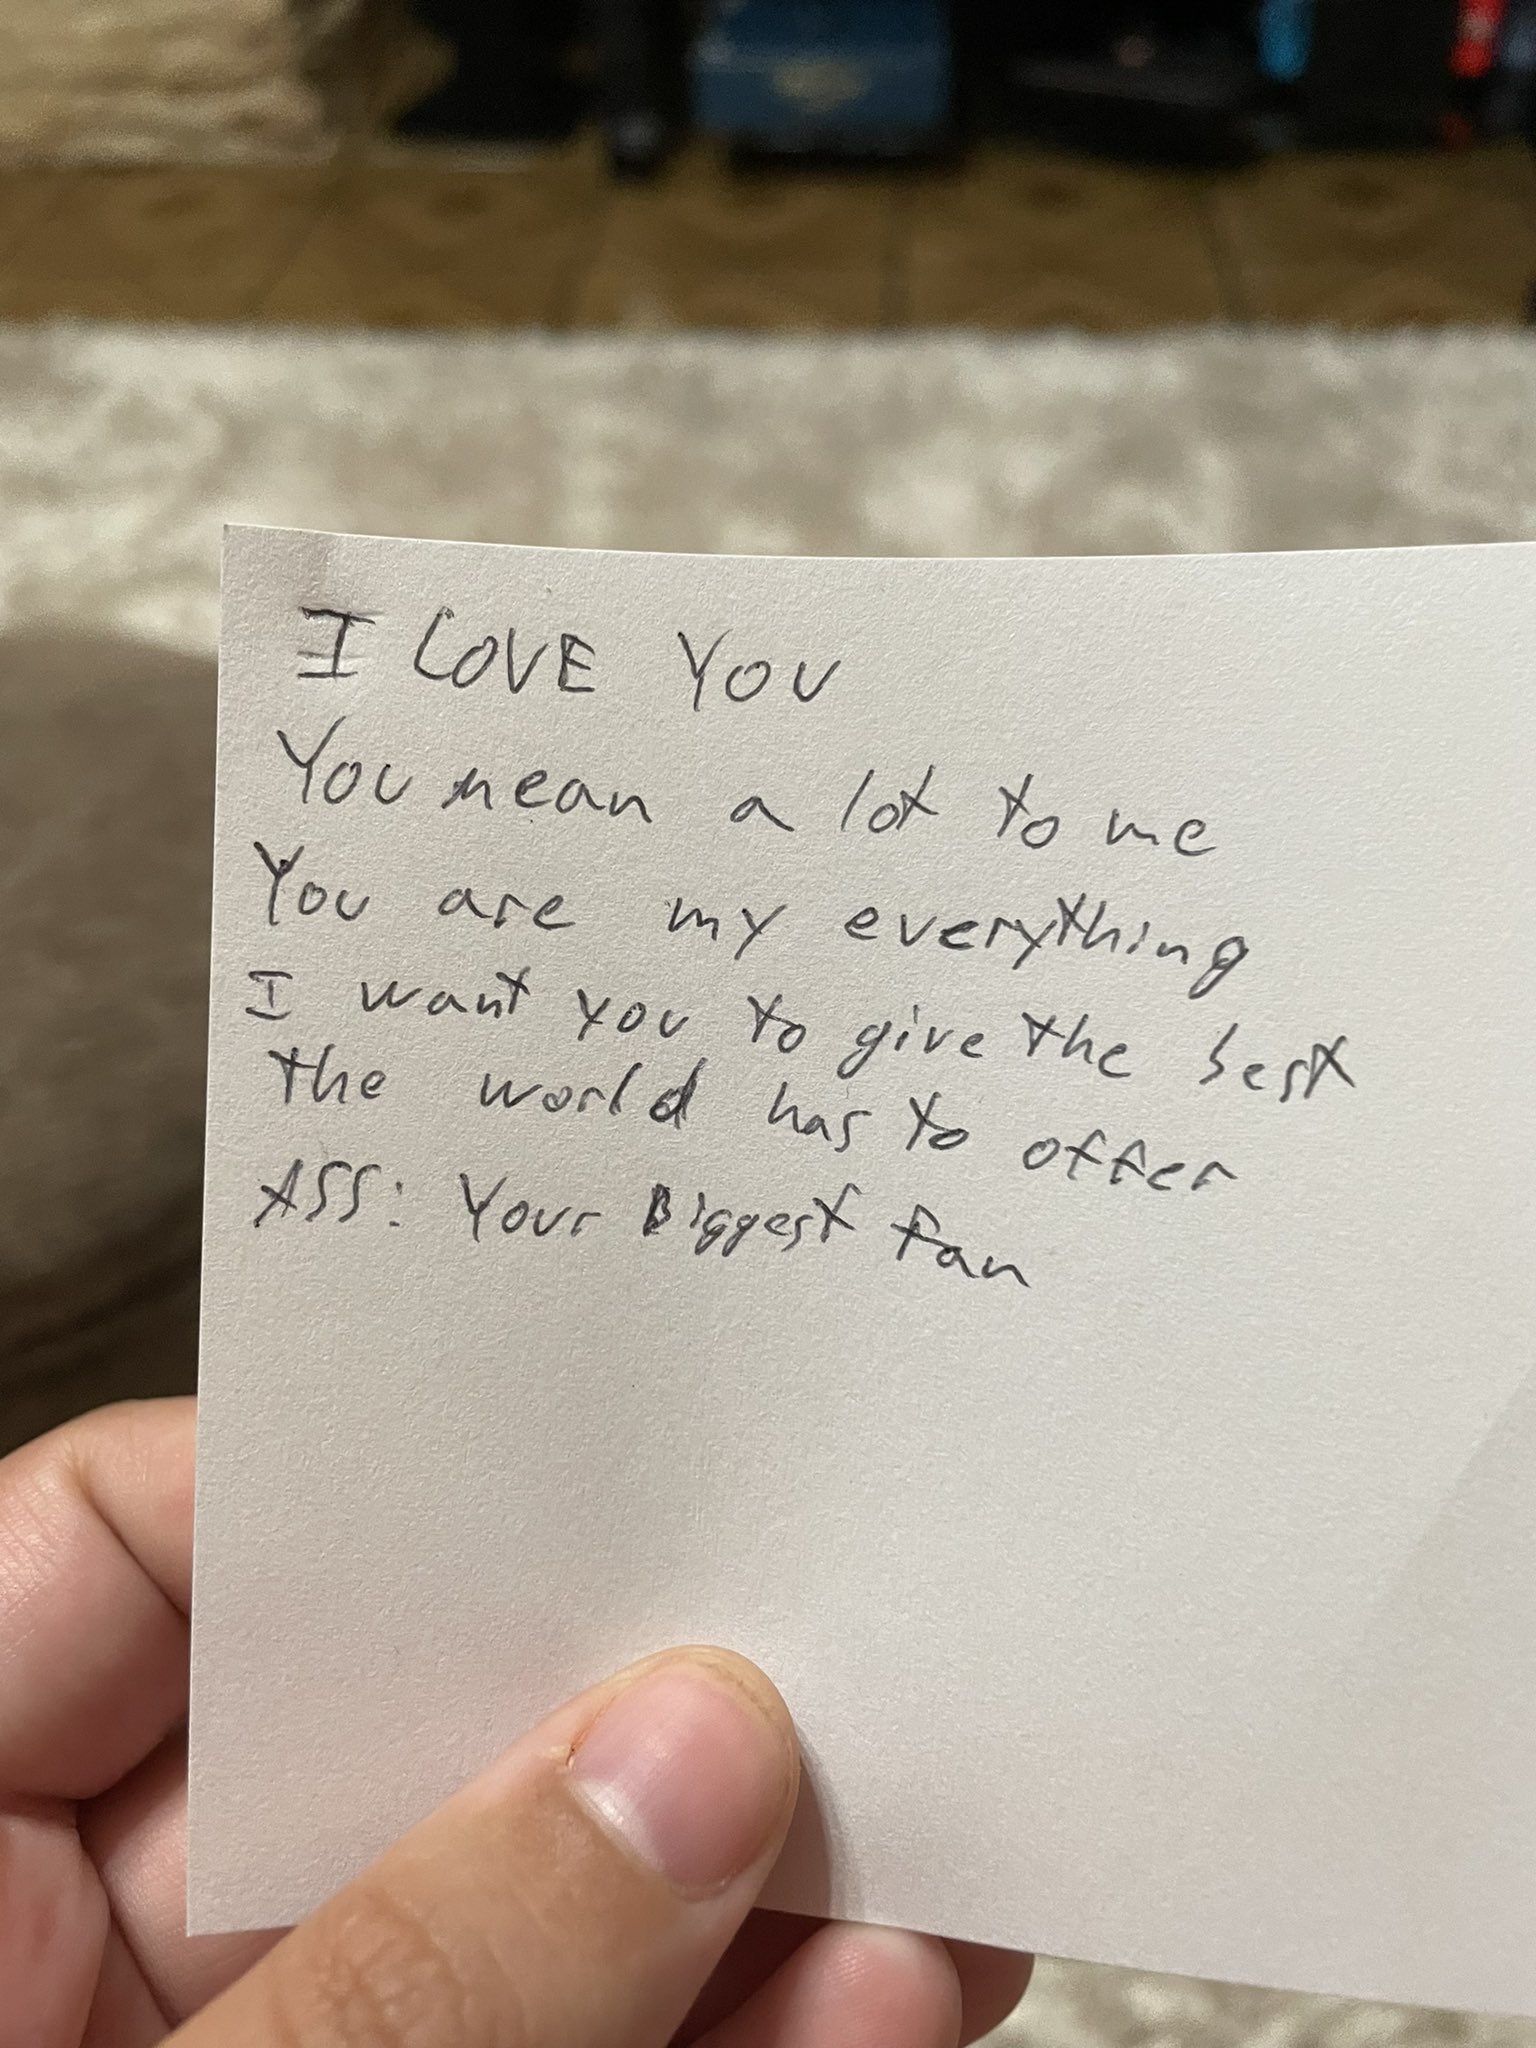 I LOVE YOU
You mean a lot to me
You are my everything
I want you to give the best
the world has to offer
ASS: Your Biggest fan